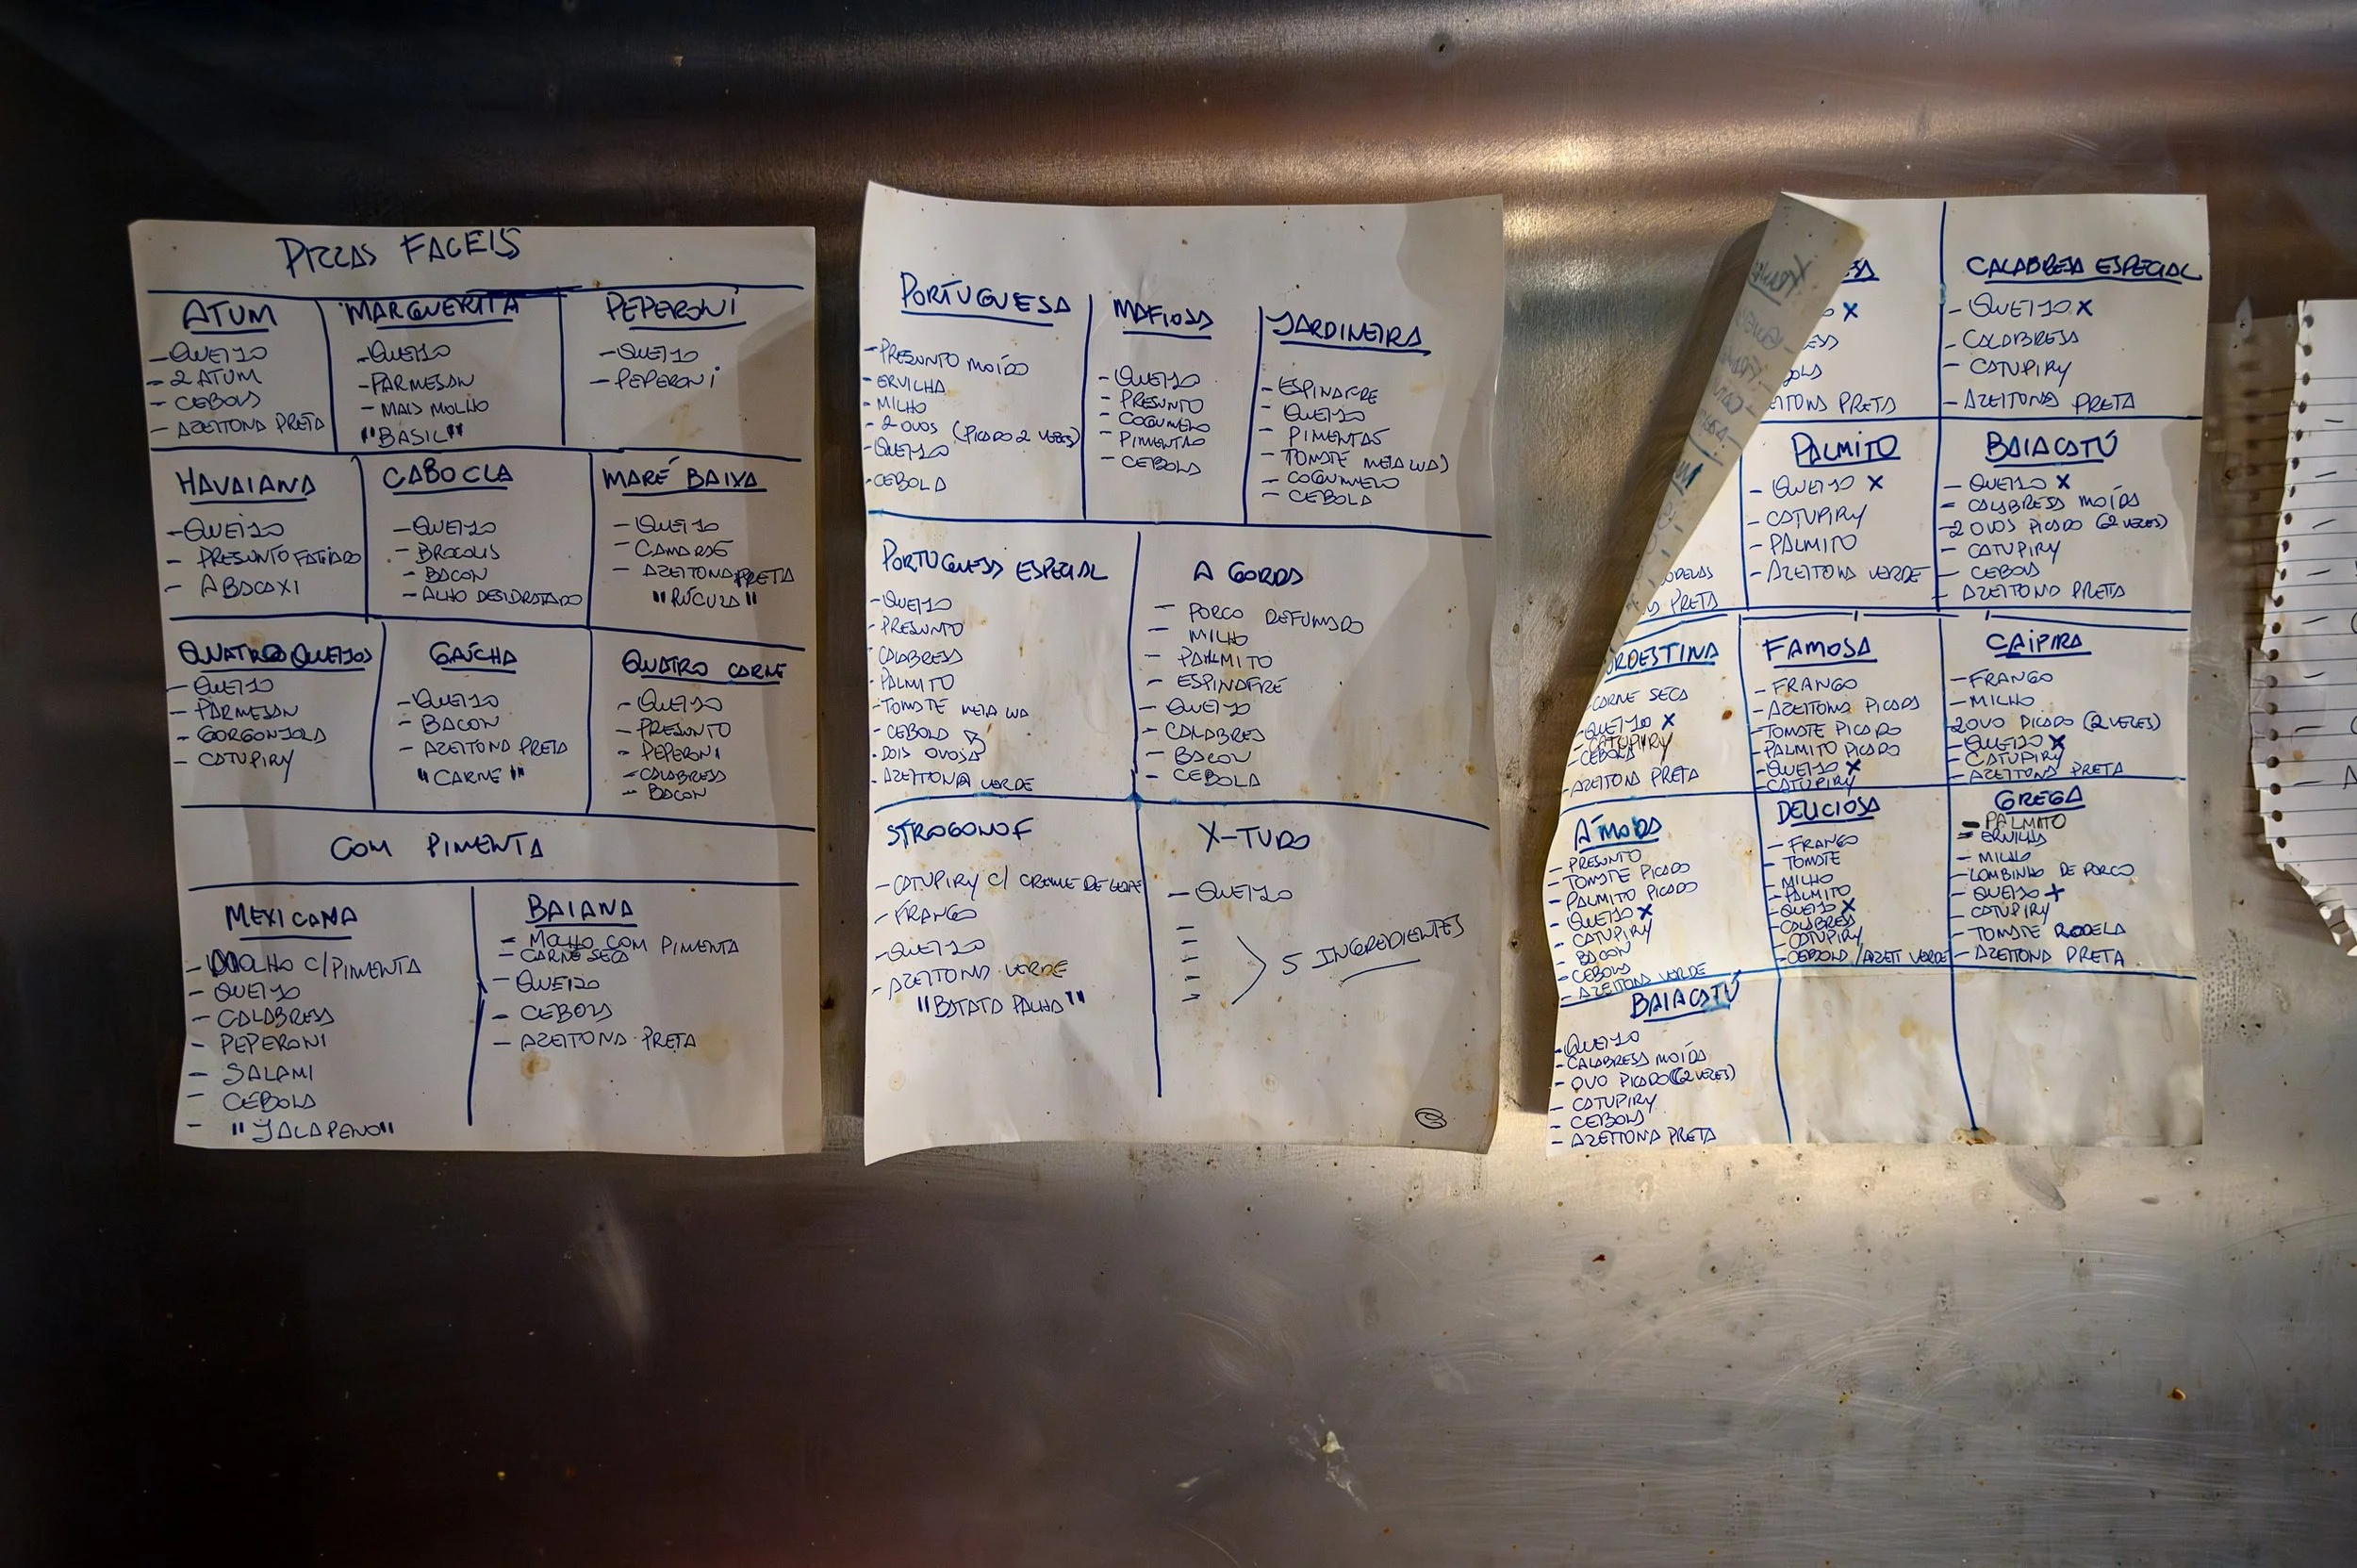 PIZZAS FACEIS
ATUM
-QUEIJO
-2 ATUM
-CEBOLA
-AZEITONA PRETA
MARGUERITA
-QUEIJO
-PARMESAN
-MAIS MOLHO
"BASIL"
PEPERONI
-QUEIJO
-PEPERONI
HAVAIANA
-QUEIJO
-PRESUNTO FATIADO
-ABACAXI
CABOCLA
-QUEIJO
-BROCOLIS
-BACON
-ALHO DESIDRATADO
MARÉ BAIXA
-QUEIJO
-CAMARÃO
-AZEITONA PRETA
"RÚCULA"
QUATRO QUEIJOS
-QUEIJO
-PARMESAN
-GORGONZOLA
-CATUPIRY
GAÚCHA
-QUEIJO
-BACON
-AZEITONA PRETA
"CARNE"
QUATRO CARNE
-QUEIJO
-PRESUNTO
-PEPERONI
-CALABRESA
-BACON
COM PIMENTA
MEXICANA
-MOLHO C/PIMENTA
-QUEIJO
-CALABRESA
-PEPERONI
-SALAMI
-CEBOLA
-"JALAPENO"
BAIANA
-MOLHO COM PIMENTA
-CARNE SECA
-QUEIJO
-CEBOLA
-AZEITONA PRETA
PORTUGUESA
-PRESUNTO MOÍDO
-ERVILHA
-MILHO
-2 OVOS (PICADO 2 VEZES)
-QUEIJO
-CEBOLA
MAFIOSA
-QUEIJO
-PRESUNTO
-COGUMELO
-PIMENTÃO
-CEBOLA
JARDINEIRA
-ESPINAFRE
-QUEIJO
-PIMENTAS
-TOMATE MEIA LUA)
-COGUMELO
-CEBOLA
PORTUGUESA ESPECIAL
-QUEIJO
-PRESUNTO
-CALABRESA
-PALMITO
-TOMATE MEIA LUA
-CEBOLA
-DOIS OVOS
-AZEITONA VERDE
A GORDA
-PORCO DEFUMADO
-MILHO
-PALMITO
-ESPINAFRE
-QUEIJO
-CALABRESA
-BACON
-CEBOLA
STROGONOF
-CATUPIRY C/ CREME DE LEITE
-FRANGO
-QUEIJO
-AZEITONA VERDE
"BATATA PALHA"
X-TUDO
-QUEIJO
-
-
-
-
-
5 INGREDIENTES
X
PRETA
CALABRESA ESPECIAL
-QUEIJO X
-CALABRESA
-CATUPIRY
-AZEITONA PRETA
PRETA
PALMITO
-QUEIJO X
-CATUPIRY
-PALMITO
-AZEITONA VERDE
BAIACATÚ
-QUEIJO X
-CALABRESA MOÍDA
-2 OVOS PICADO (2 VEZES)
-CATUPIRY
-CEBOLA
-AZEITONA PRETA
RDESTINA
CARNE SECA
-QUEIJO X
-CATUPIRY
-CEBOLA
-AZEITONA PRETA
FAMOSA
-FRANGO
-AZEITONA PICADA
-TOMATE PICADO
-PALMITO PICADO
-QUEIJO X
-CATUPIRY
CAIPIRA
-FRANGO
-MILHO
2 OVO PICADO (2 VEZES)
-QUEIJO X
-CATUPIRY
-AZEITONA PRETA
A MODA
-PRESUNTO
-TOMATE PICADO
-PALMITO PICADO
-QUEIJO X
-CATUPIRY
-BACON
-CEBOLA
-AZEITONA VERDE
DELICIOSA
-FRANGO
-TOMATE
-MILHO
-PALMITO
-QUEIJO X
-CALABRESA
-CATUPIRY
-CEBOLA /AZEIT VERDE
GREGA
-PALMITO
-ERVILHA
-MILHO
-LOMBINHO DE PORCO
-QUEIJO X
-CATUPIRY
-TOMATE RODELA
-AZEITONA PRETA
BAIACATÚ
-QUEIJO
-CALABRESA MOÍDA
-OVO PICADO (2 VEZES)
-CATUPIRY
-CEBOLA
-AZEITONA PRETA